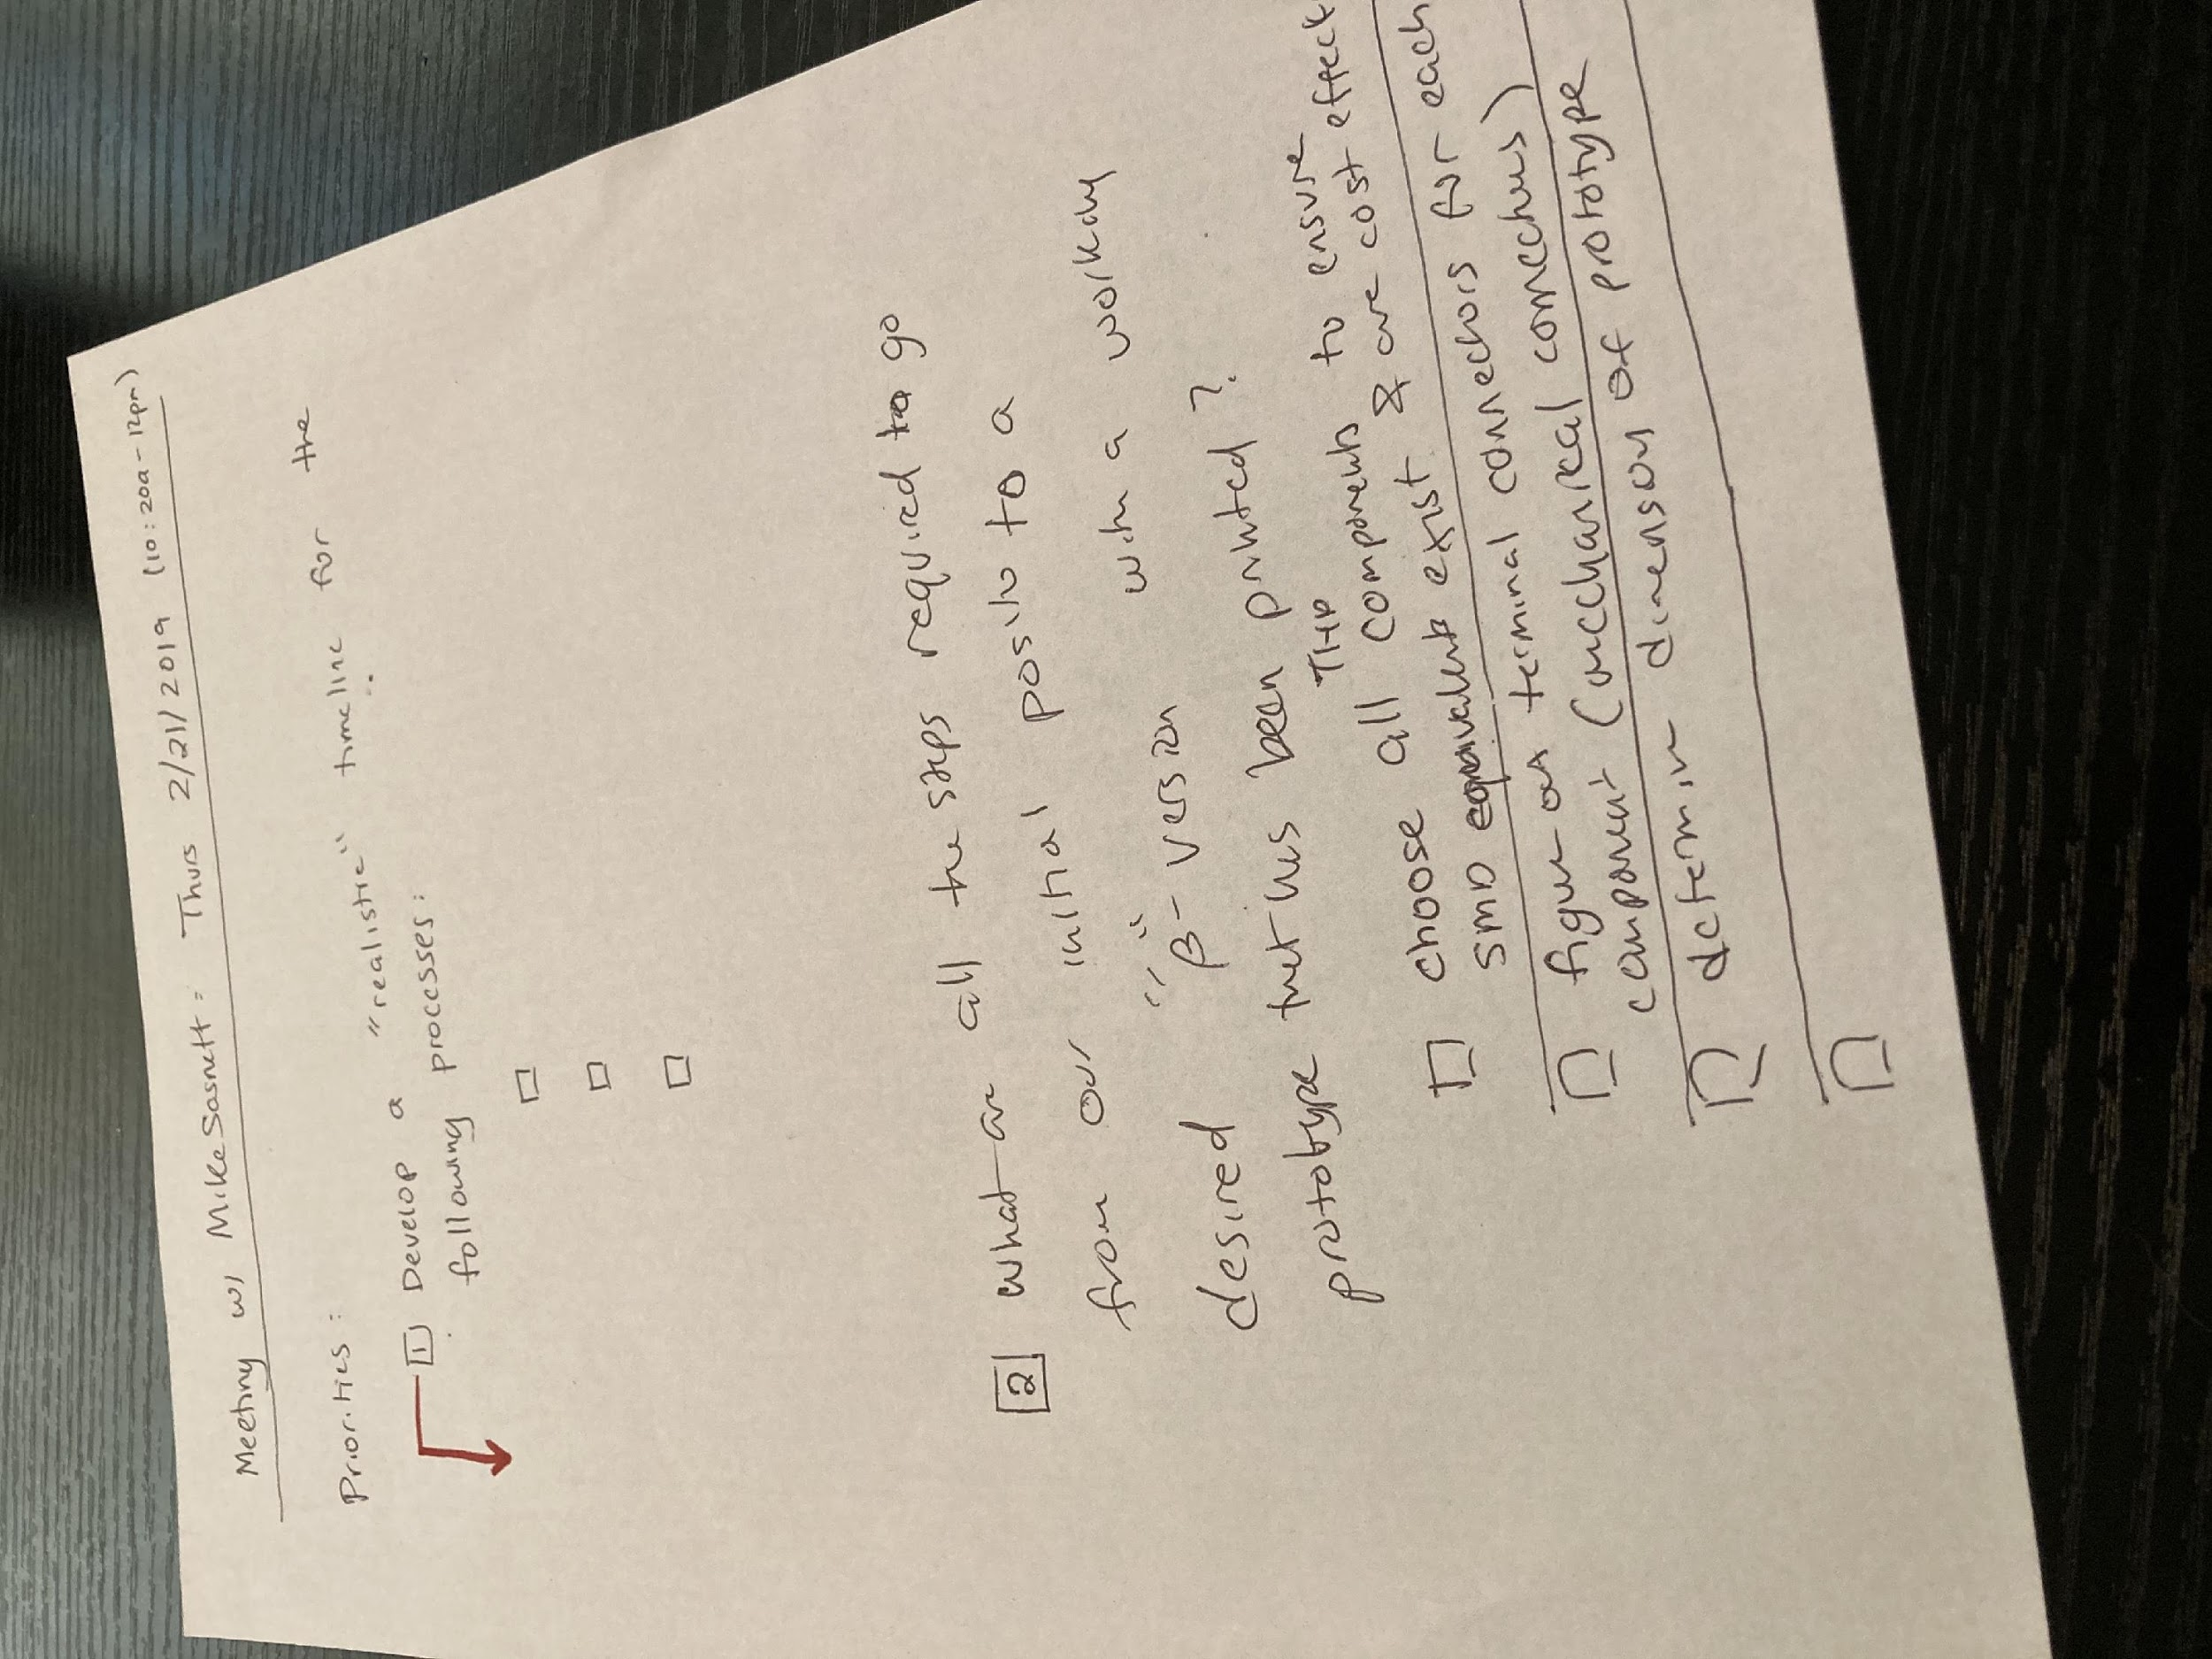 Meeting w/ Mike Sosnett: Thurs 2/21/2019 (10:20a-12pm)
Priorities:
1 Develop a "realistic" timeline for the
following processes:
2 what are all the steps required to go
from our initial to a
desired "β"-version with a working
prototype that has been printed?
choose all THD components to ensure
SMD equivalents exist & are cost effect
figure out terminal connectors for each
component (mechanical connections)
determine dimensions of prototype